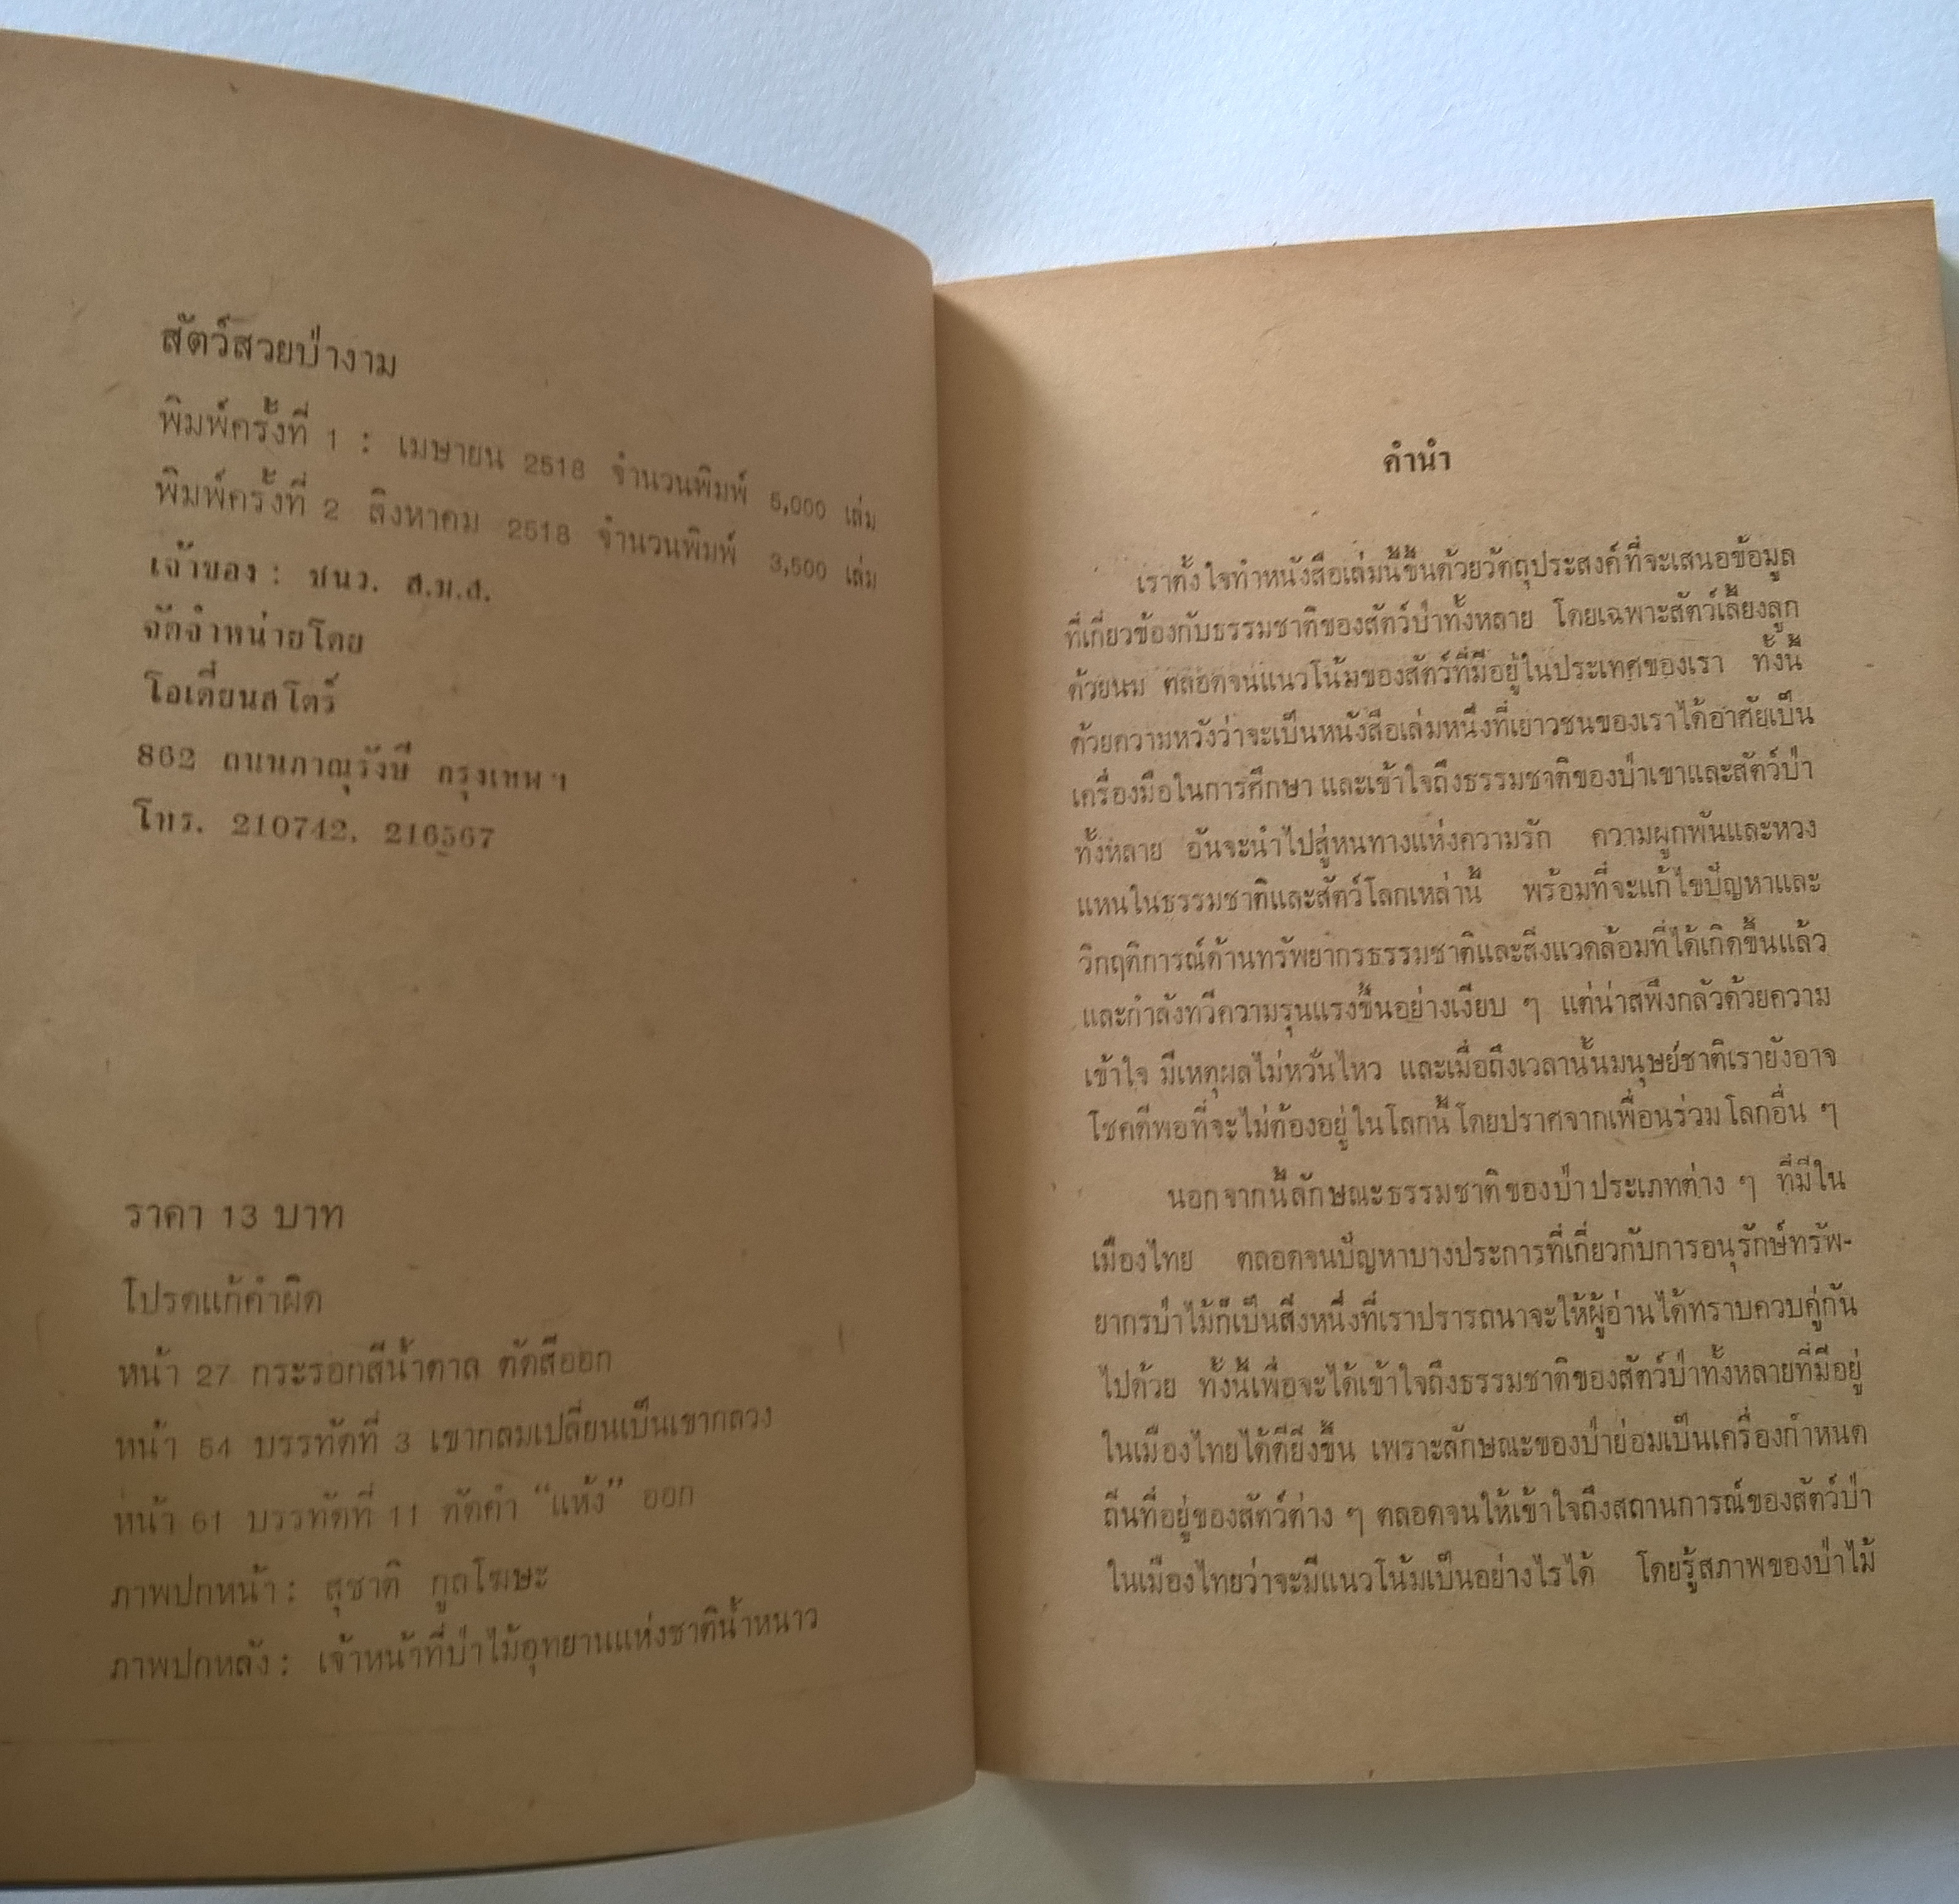 สัตว์สวยป่างาม
พิมพ์ครั้งที่ 1 : เมษายน 2518 จำนวนพิมพ์ 5,000 เล่ม
พิมพ์ครั้งที่ 2 สิงหาคม 2518 จำนวนพิมพ์ 3,500 เล่ม
เจ้าของ : ชนว. ส.ม.ส.
จัดจำหน่ายโดย
โอเดี้ยนสโตร์
862 ถนนภาณุรังษี กรุงเทพฯ
โทร. 210742, 216567
ราคา 13 บาท
โปรดแก้คำผิด
หน้า 27 กระรอกสีน้ำตาล ตัดสีออก
หน้า 54 บรรทัดที่ 3 เขากลมเปลี่ยนเป็นเขากลวง
หน้า 61 บรรทัดที่ 11 ตัดคำ “แห้ง” ออก
ภาพปกหน้า : สุชาติ กูลโฆษะ
ภาพปกหลัง : เจ้าหน้าที่ป่าไม้อุทยานแห่งชาติน้ำหนาว
คำนำ
เราตั้งใจทำหนังสือเล่มนี้ขึ้นด้วยวัตถุประสงค์ที่จะเสนอข้อมูล
ที่เกี่ยวข้องกับธรรมชาติของสัตว์ป่าทั้งหลาย โดยเฉพาะสัตว์เลี้ยงลูก
ด้วยนม ตลอดจนแนวโน้มของสัตว์ที่มีอยู่ในประเทศของเรา ทั้งนี้
ด้วยความหวังว่าจะเป็นหนังสือเล่มหนึ่งที่เยาวชนของเราได้อาศัยเป็น
เครื่องมือในการศึกษา และเข้าใจถึงธรรมชาติของป่าเขาและสัตว์ป่า
ทั้งหลาย อันจะนำไปสู่หนทางแห่งความรัก ความผูกพันและหวง
แหนในธรรมชาติและสัตว์โลกเหล่านี้ พร้อมที่จะแก้ไขปัญหาและ
วิกฤติการณ์ด้านทรัพยากรธรรมชาติและสิ่งแวดล้อมที่ได้เกิดขึ้นแล้ว
และกำลังทวีความรุนแรงขึ้นอย่างเงียบ ๆ แต่น่าสพึงกลัวด้วยความ
เข้าใจ มีเหตุผลไม่หวั่นไหว และเมื่อถึงเวลานั้นมนุษย์ชาติเรายังอาจ
โชคดีพอที่จะไม่ต้องอยู่ในโลกนี้โดยปราศจากเพื่อนร่วมโลกอื่น ๆ
นอกจากนี้ลักษณะธรรมชาติของป่าประเภทต่าง ๆ ที่มีใน
เมืองไทย ตลอดจนปัญหาบางประการที่เกี่ยวกับการอนุรักษ์ทรัพ-
ยากรป่าไม้ก็เป็นสิ่งหนึ่งที่เราปรารถนาจะให้ผู้อ่านได้ทราบควบคู่กัน
ไปด้วย ทั้งนี้เพื่อจะได้เข้าใจถึงธรรมชาติของสัตว์ป่าทั้งหลายที่มีอยู่
ในเมืองไทยได้ดียิ่งขึ้น เพราะลักษณะของป่าย่อมเป็นเครื่องกำหนด
ถิ่นที่อยู่ของสัตว์ต่าง ๆ ตลอดจนให้เข้าใจถึงสถานการณ์ของสัตว์ป่า
ในเมืองไทยว่าจะมีแนวโน้มเป็นอย่างไรได้ โดยรู้สภาพของป่าไม้